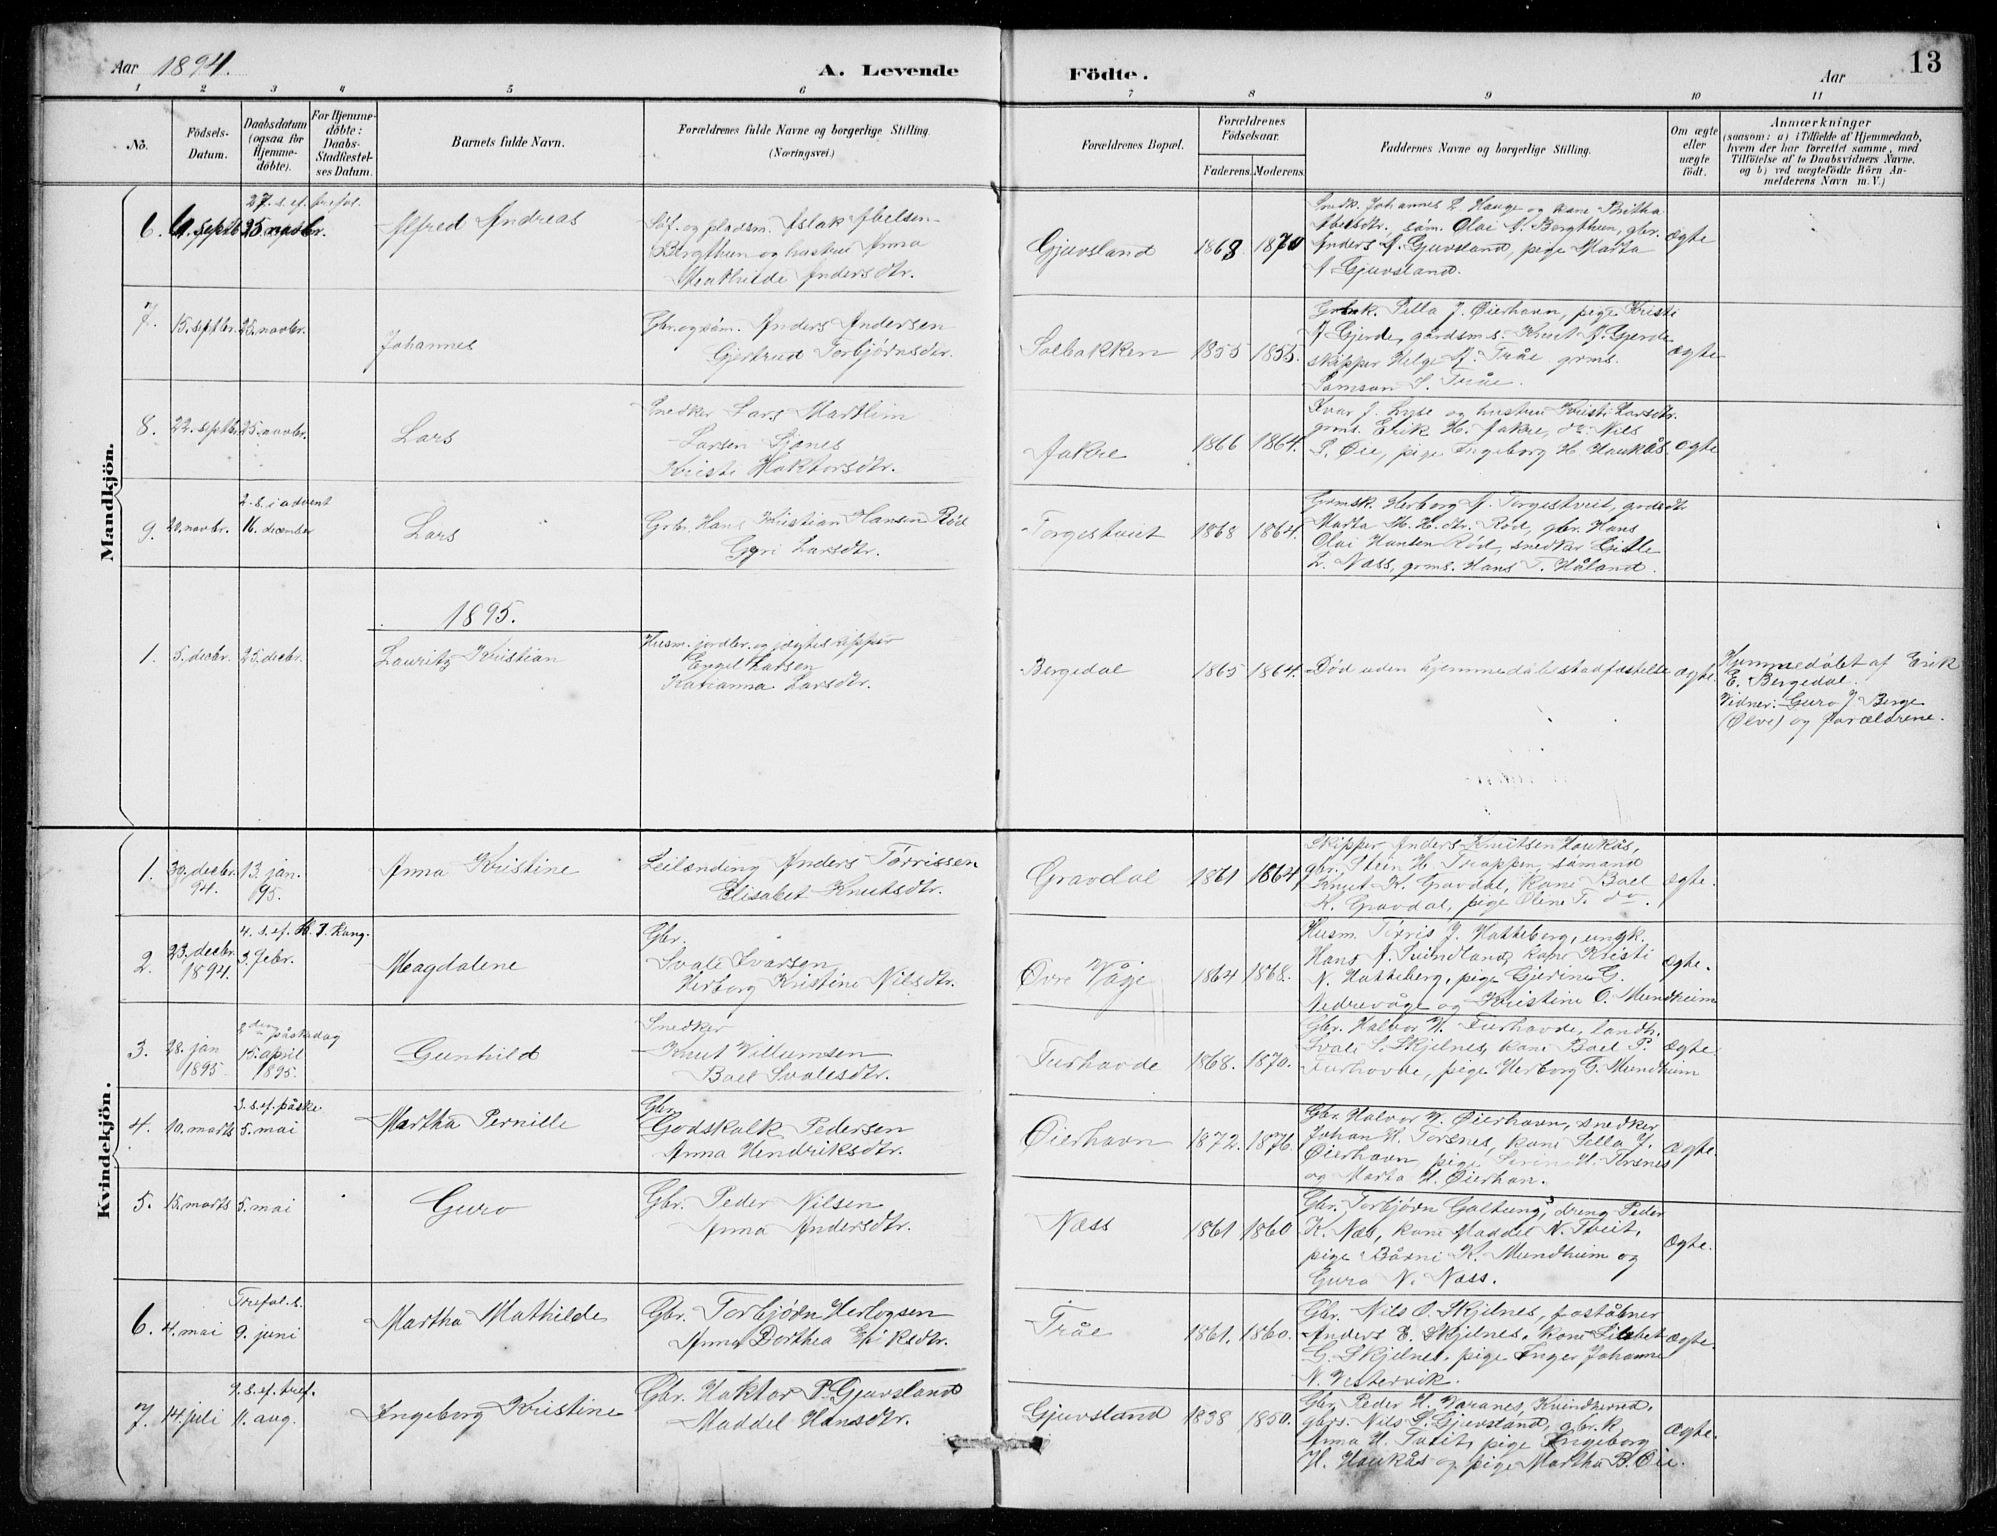 Aar 1894.
A. Levende
Födte.
Aar
13
1 2 3 4 5 6 7 8 9 10 11
No.
Födsels-Datum.
Daabsdatum (ogsaa for Hjemmedöbte).
For Hjemmedöbte: Daabs-Stadfæstelses Datum.
Barnets fulde Navn.
Forældrenes fulde Navne og borgerlige Stilling. (Næringsvei.)
Forældrenes Bopæl.
Forældrenes Födselsaar.
Faderens. Moderens.
Faddernes Navne og borgerlige Stilling.
Om ægte eller uægte født.
Anmærkninger
(saasom: a) i Tilfælde af Hjemmedaab, hvem der har forrettet samme, med Tilföielse af to Daabsvidners Navne, og b) ved uægtefödte Börn Anmelderens Navn m. V.)
Mandkjön.
27. s. ef. trefol.
6. 4. septb 25. novbr. Alfred Andreas
Søf. og pladsm. Aslak Abelsen
Bergthun og hustru Anna
Mathilde Andersdtr.
Gjuvsland 1868 1870
Snedk. Johannes L. Hauge og kone Britha
Abelsdtr., søm. Olai A. Bergthun, gbr.
Anders A. Gjuvsland, pige Marta
A Gjuvsland.
Ægte
7. 15. septbr. 25. novbr. Johannes
Gbr. og søm. Anders Andersen
Gjertrud Torbjørnsdtr.
Solbakken 1855 1855.
Grbk. Silla J. Øierhavn, pige Kristi
A Gjerde, gårdsms. Knut A. Gjerde
skipper Helge A. Tråe grms.
Samson S. Tråe.
Ægte
8. 22. septbr. 25. novbr. Lars
Snedker Lars Martlim
Larsen Sjones
Kristi Haktorsdtr.
Aakre 1866 1864.
Ivar J. Lybe og hustru Kristi Larsdtr.
grms. Erik H. Aakre, do. Nils
P. Øie, pige Ingeborg H. Haukås.
Ægte
2. s. i advent
9. 20. novbr. 16. december Lars
Grbr. Hans Kristian Hansen Rød
Gyri Larsdtr.
Torgestveit 1868 1864.
Grmsk. Herborg A. Torgestveit, godsdtr
Marta M. H. dtr. Rød, gbr. Hans
Olai Hansen Rød, snedker Gitle
L. Næss, grms. Hans T. Håland.
1895.
1. 5. decbr. 25. decbr. Lauritz Kristian
Husm. jordbr. og jægtskipper
Engel Larsen
Katrianna Larsdtr.
Bergedal 1865 1864.
Død uden hjemmedåbsstadfæstelse
Ægte.
Hjemmedøbt af Erik
E. Bergedal.
Vidner: Guro J. Berge
(Ølve) og forældrene.
Kvindekjön.
1. 30. decbr. 94. 13. jan. 95. Anna Kristine
Leilending Anders Tørrissen
Elisabet Knutsdtr.
Gravdal 1861 1864
Skipper Anders Knutsen Haukås,
gbr. Stein H. Trappen, sømand
Knut K. Gravdal, kone Boel
K. Gravdal, pige Oline T. do.
Ægte.
4. s. ef. H. 3 Kong.
2. 23. decbr. 1894. 3. febr. Magdalene
Gbr.
Svale Ivarsen
Herborg Kristine Nilsdtr.
Øvre Våge 1864 1868.
Husm. Tørris J. Hatteberg, ungk.
Hans A. Svindland, kone Kristi
N. Hatteberg, pige Gjerine G.
Nedrevåge og Kristine O. Mundheim
Ægte.
2den påskedag
3. 28. jan 1895 15. april 1895. Gunhild
Snedker
Knut Villumsen
Boel Svalesdtr.
Furhovde 1868. 1870.
Gbr. Halvor W. Furhovde, landh.
Svale S. Skjelnes, kone Boel P.
Furhovde, pige Herborg G. Mundheim
Ægte
3. s. ef. påske
4. 10. marts 5. mai Martha Pernille
Gbr.
Godskalk Pedersen
Anna Hendriksdtr.
Øierhavn 1872. 1876.
Gbr. Halvor W. Øierhavn, snedker
Johan H. Torsnes, kone Silla J.
Øierhavn, pige Serin H. Torsnes
og Marta H. Øierhan.
Ægte.
5. 15. marts 5. mai Guro
Gbr. Peder Nilsen
Anna Andersdtr.
Næss 1861 1860
Gbr. Torbjørn Galtung, dreng Peder
K. Næs, kone Maddel N. Tveit,
pige Bårni K. Mundheim og
Guro N. Næss.
Ægte.
Trefol. s.
6. 4. mai 9. juni Martha Mathilde
Gbr. Torbjørn Herlogsen
Anna Dorthea Eriksdtr.
Tråe 1861. 1860.
Gbr. Nils O. Skjelnes, poståbner
Anders E. Skjelnes, kone Lisbet
G. Skjelnes, pige Inger Johanne
N. Vestervik.
Ægte.
9. s. ef. tref.
7. 14. juli 11. aug. Ingeborg Kristine
Gbr. Haktor P. Gjuvsland
Maddel Hansdtr.
Gjuvsland 1838 1850.
Gbr. Peder H. Varanes, Kvindherred,
gbrs. Nils S. Gjuvsland, gbr. k.
Anna H. Tveit, pige Ingeborg
H. Haukås og pige Martha B. Øie.
Ægte.